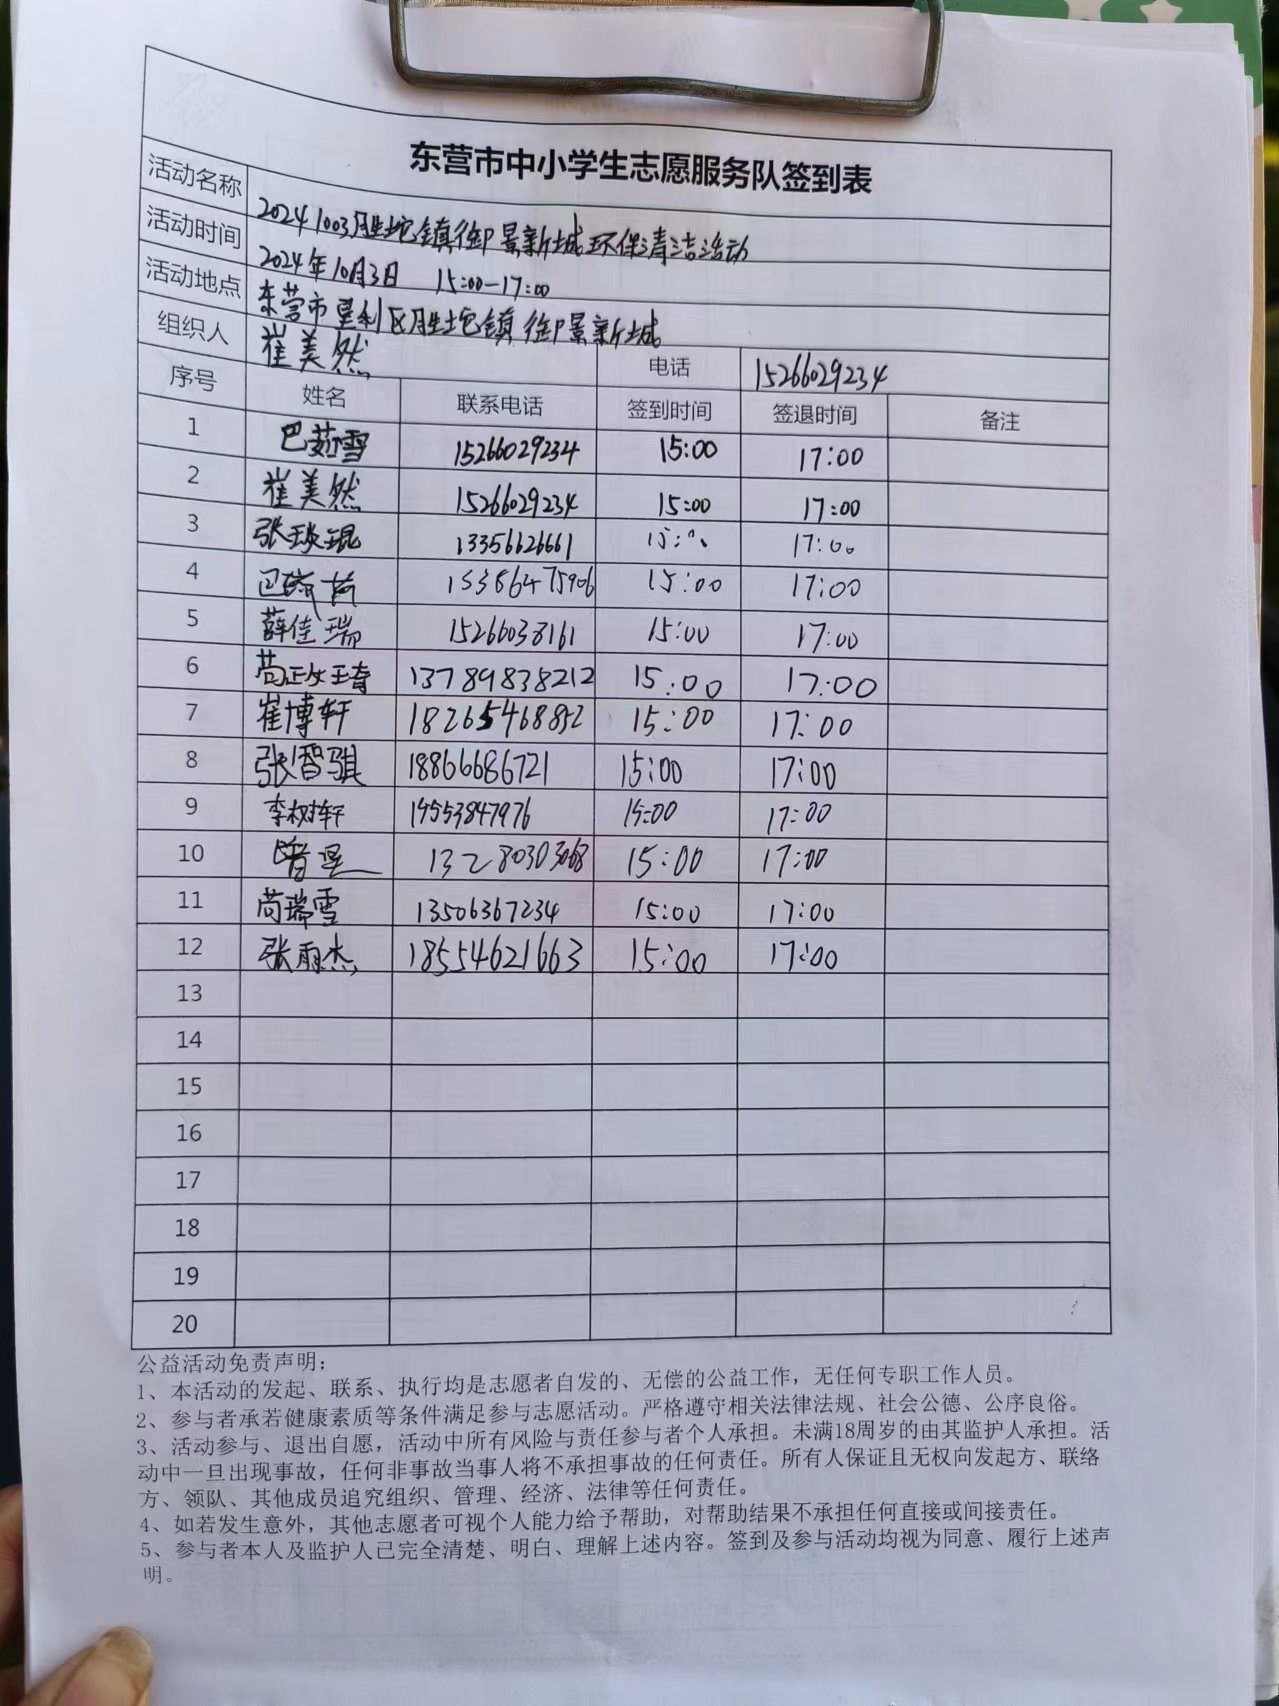 东营市中小学生志愿服务队签到表
活动名称 20241003胜坨镇御景新城环保清洁活动
活动时间 2024年10月3日 15:00-17:00
活动地点 东营市垦利区胜坨镇御景新城
组织人 崔美然 电话 15266029234
序号 姓名 联系电话 签到时间 签退时间 备注
1 巴茹雪 15266029234 15:00 17:00
2 崔美然 15266029234 15:00 17:00
3 张琰琨 13356626661 17:00
4 15386475906 15:00 17:00
5 薛佳瑞 15266038161 15:00 17:00
6 13789838212 15:00 17:00
7 崔博轩 18265468852 15:00 17:00
8 张智骐 18866686721 15:00 17:00
9 李树轩 19553847976 15:00 17:00
10 13280303068 15:00 17:00
11 苟瑞雪 13506367234 15:00 17:00
12 张雨杰 18554621663 15:00 17:00
13
14
15
16
17
18
19
20
公益活动免责声明：
1、本活动的发起、联系、执行均是志愿者自发的、无偿的公益工作，无任何专职工作人员。
2、参与者承若健康素质等条件满足参与志愿活动。严格遵守相关法律法规、社会公德、公序良俗。
3、活动参与、退出自愿，活动中所有风险与责任参与者个人承担。未满18周岁的由其监护人承担。活
动中一旦出现事故，任何非事故当事人将不承担事故的任何责任。所有人保证且无权向发起方、联络
方、领队、其他成员追究组织、管理、经济、法律等任何责任。
4、如若发生意外，其他志愿者可视个人能力给予帮助，对帮助结果不承担任何直接或间接责任。
5、参与者本人及监护人已完全清楚、明白、理解上述内容。签到及参与活动均视为同意、履行上述声
明。